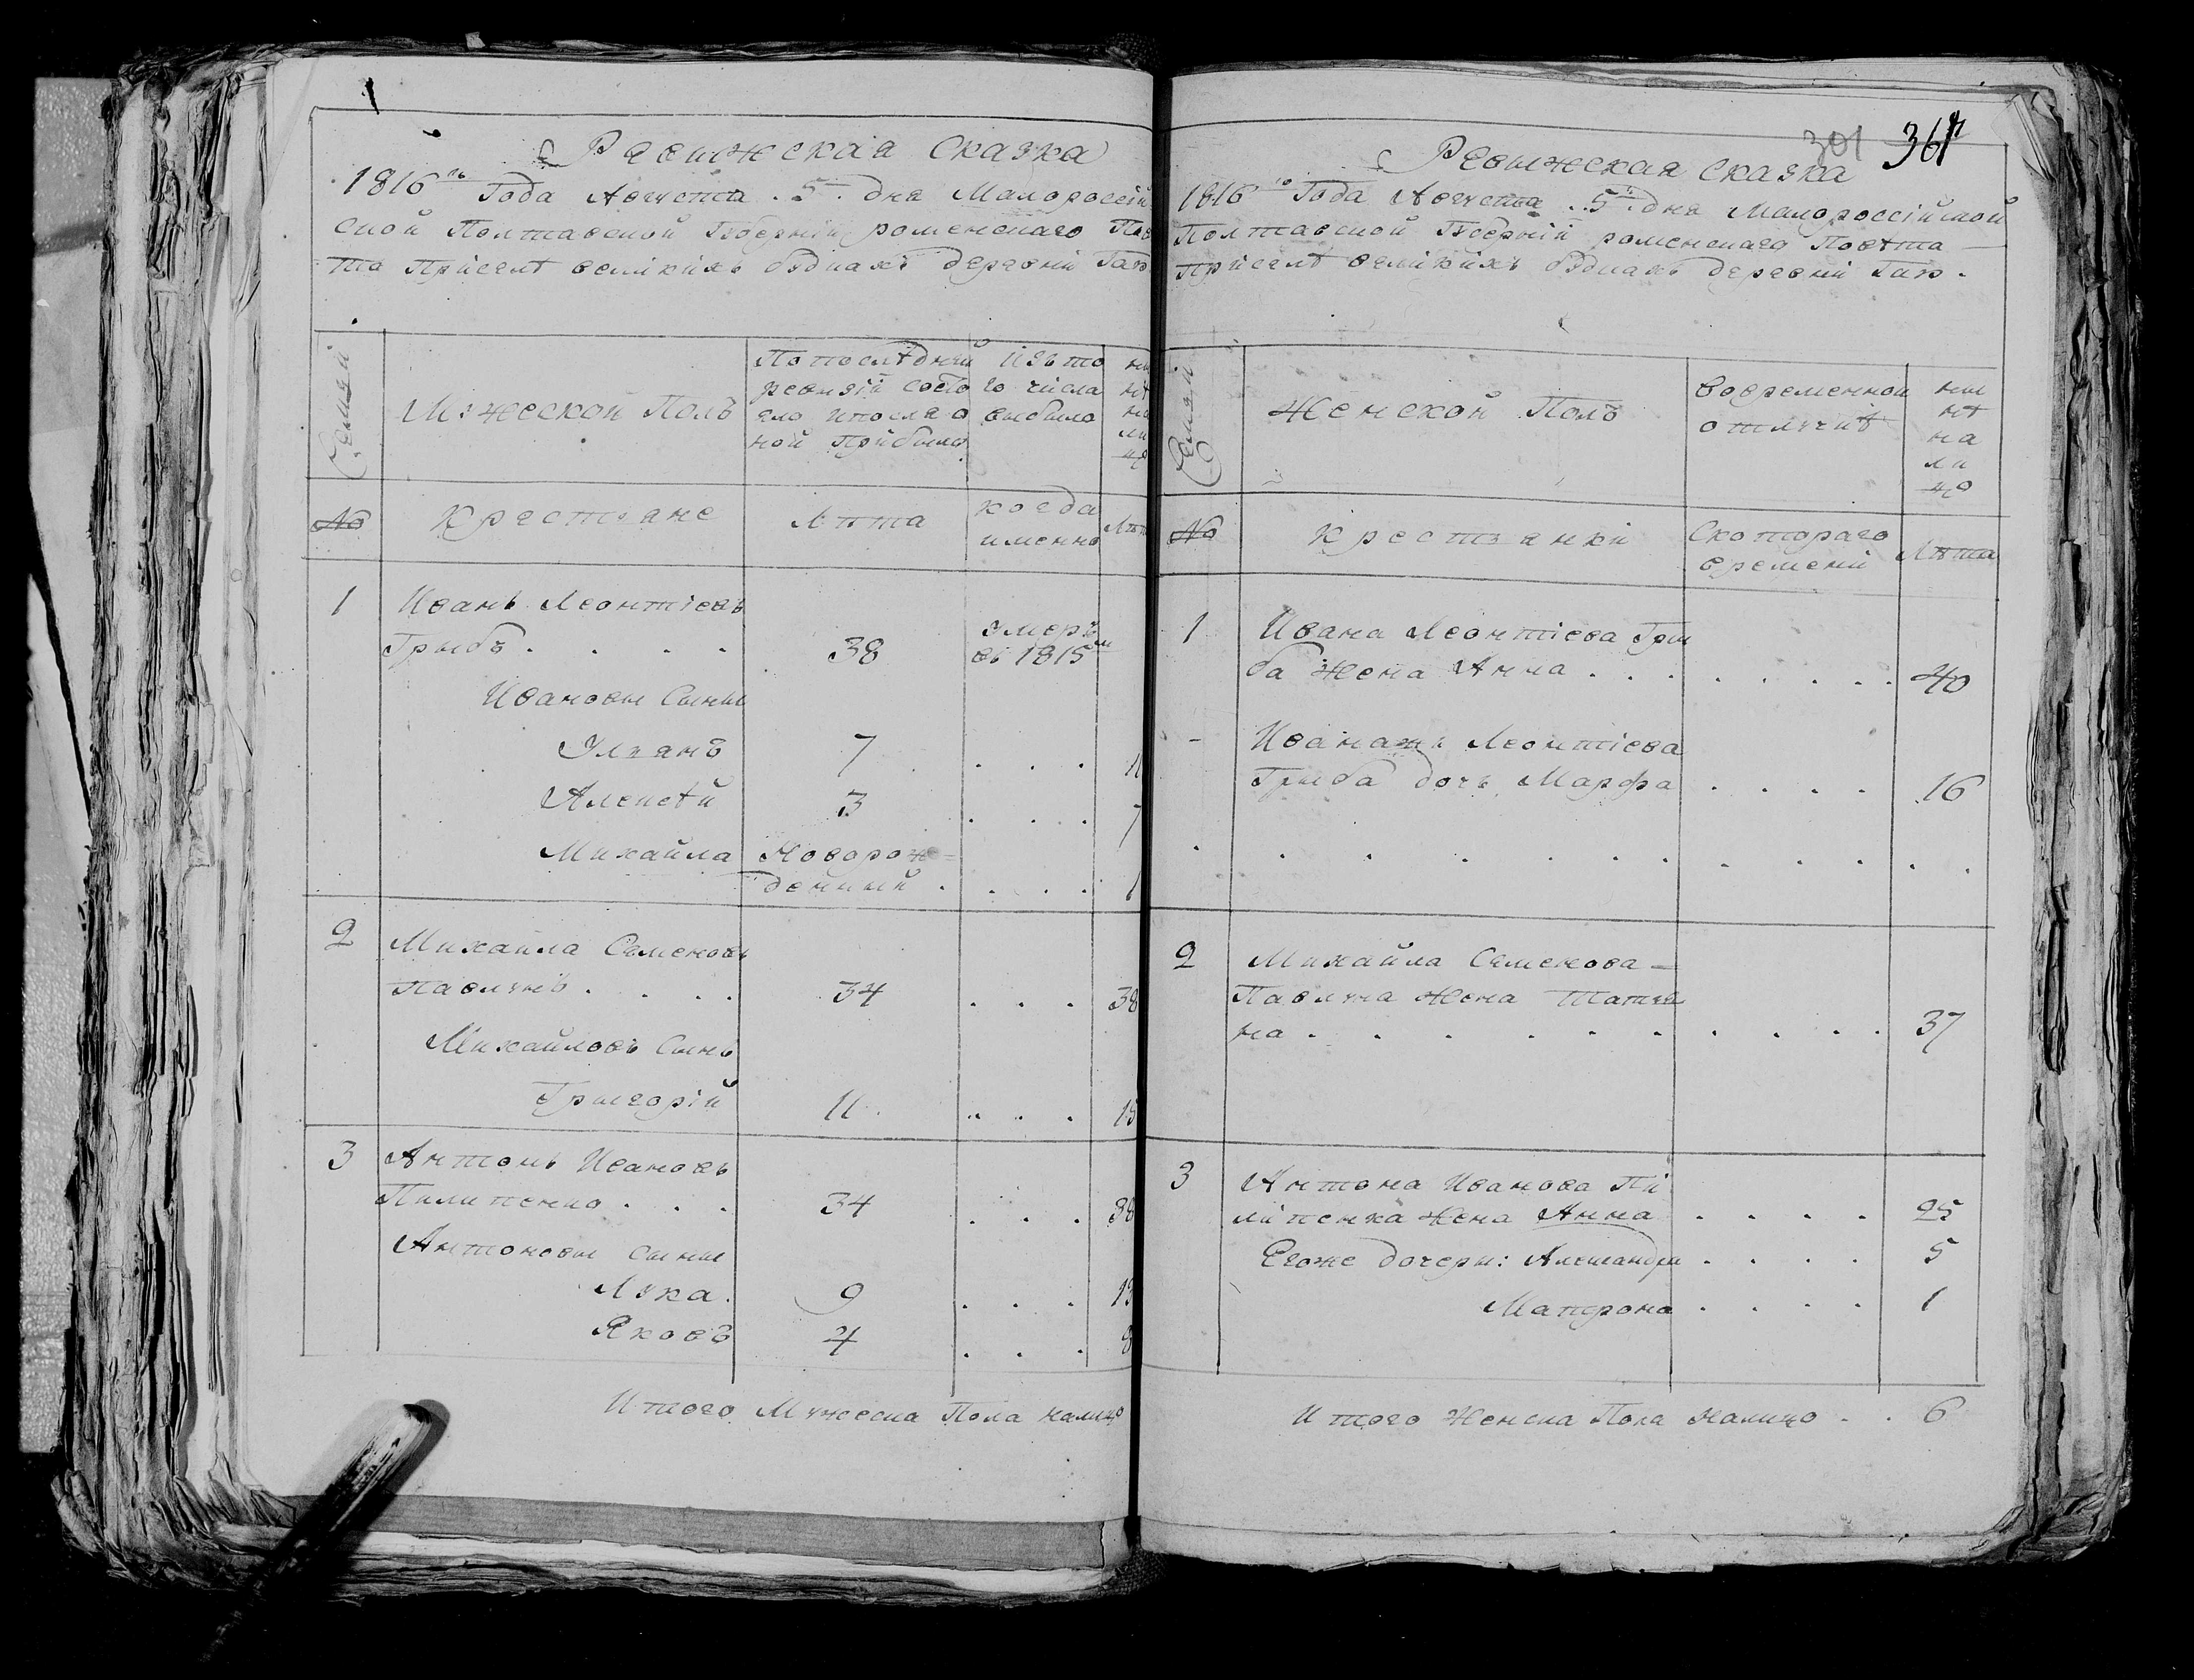 Ревижская Сказка
1816го Года Августа 5 дня Малороссій
ской Полтавской Губерніи роменского Пов
та Приселѣ великихъ будкахъ деревни Гаю
Семьи
Мужеской Полъ
По последней
ревизіи состо
яло ипосле о
ной Прибыло
Изъ то
го числа
выбыло
ны
нѣ
на
ли
цо
№
Крестяне
Лѣта
когда
именно
Лѣт
1
Иванъ Леонтіевъ
Грыбъ . . . .
38
умеръ
въ 1815м
Ивановы Сыны
Улянъ
7
. . . 11
Алексѣй
3
. . . 7
Михайла
Новорож=
денный . . . . 1
2
Михайла Семеновъ
Павлунъ . . . .
34
. . . 38
Михайловъ Сынъ
Григорій
11
. . . 15
3
Антонъ Ивановъ
Пилипенко . . .
34
. . . 38
Антоновы Сыны
Лука
9
. . . 13
Яковъ
4
. . . 8
Итого Мужеска Пола налицо
301 361
Ревижская Сказка
1816го Года Августа 5 дня Малороссійской
Полтавской Губерніи роменского Повѣта
Приселѣ великихъ будкахъ деревни Гаю.
Семьи
Женской Полъ
Вовременной
отлучкѣ
ны
нѣ
на
ли
цо
№
Крестянки
Скотораго
времени
Лѣта
1
Ивана Леонтіева Гры
ба Жена Анна . . . . . . . . 40
- Иванажъ Леонтіева
Грыба дочь Марфа . . . . 16
2
Михайла Семенова =
Павлуна Жена Татия
на . . . . . . . . . . 37
3
Антона Иванова Пи
липенка Жена Анна . . . . 25
Егоже дочеры: Александра . . . . 5
Матрона . . . . 1
Итого Женска Пола Налицо . . 6